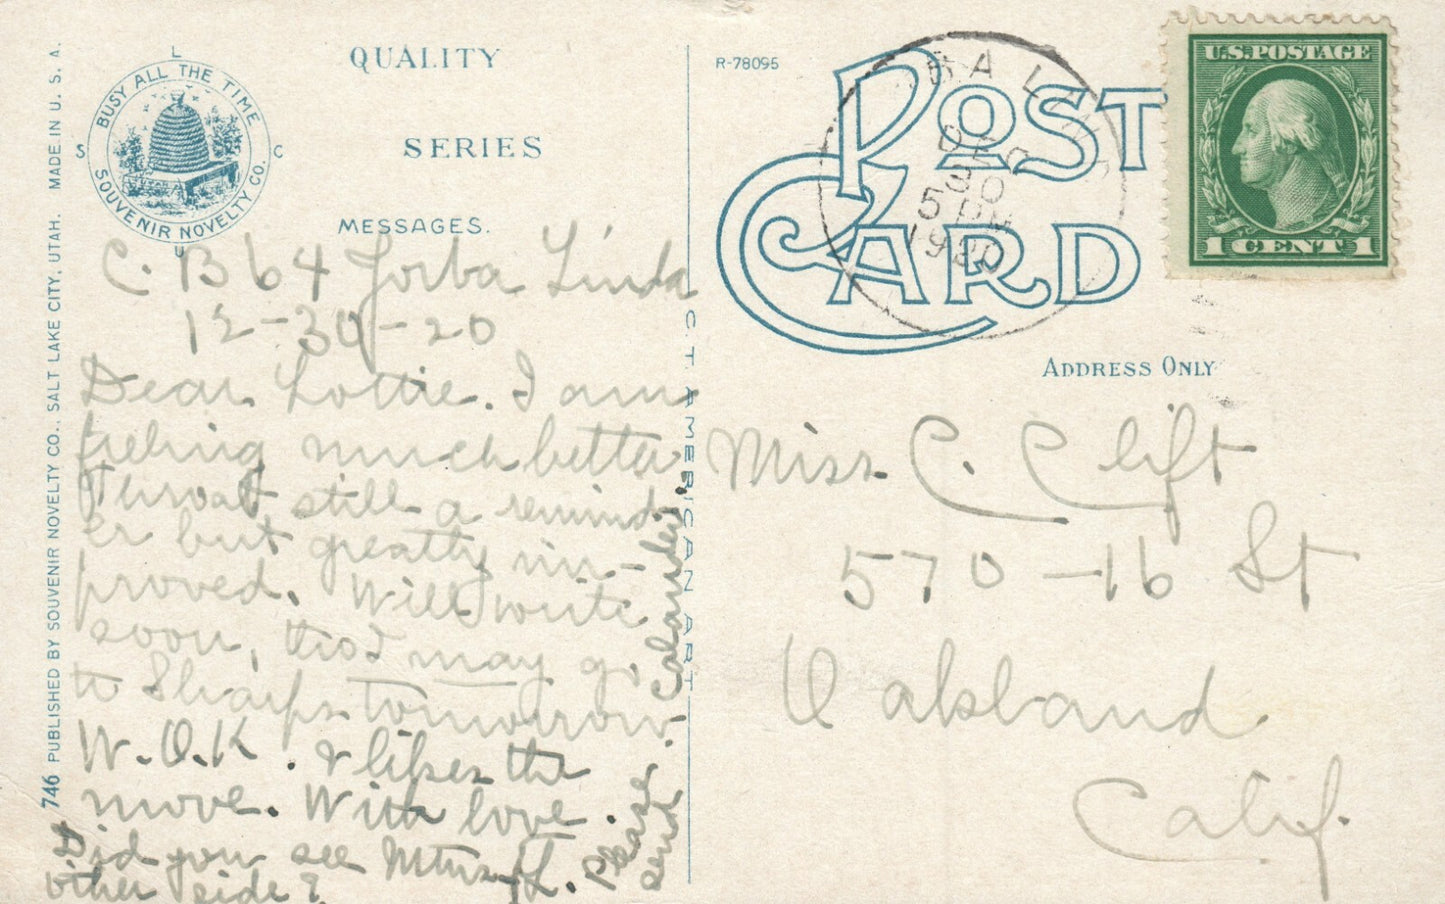 QUALITY
SERIES
MESSAGES.
BUSY ALL THE TIME
SOUVENIR NOVELTY CO.
S L C U
746 PUBLISHED BY SOUVENIR NOVELTY CO., SALT LAKE CITY, UTAH. MADE IN U. S. A.
C. B 64 Yorba Linda
12-30-20
Dear Lottie. I am
feeling much better
Throat still a remind-
er but greatly im-
proved. Will write
soon, tho I may go
to Sharps tomorrow.
W. O.K. & likes the
move. With love.
Did you see Mtns
other side?
Please
send
Calander.
C. T. AMERICAN ART
R-78095
POST
CARD
DEC
30
5 PM
1920
U.S. POSTAGE
1 CENT 1
ADDRESS ONLY
Miss C. Clift
570-16 St
Oakland
Calif.